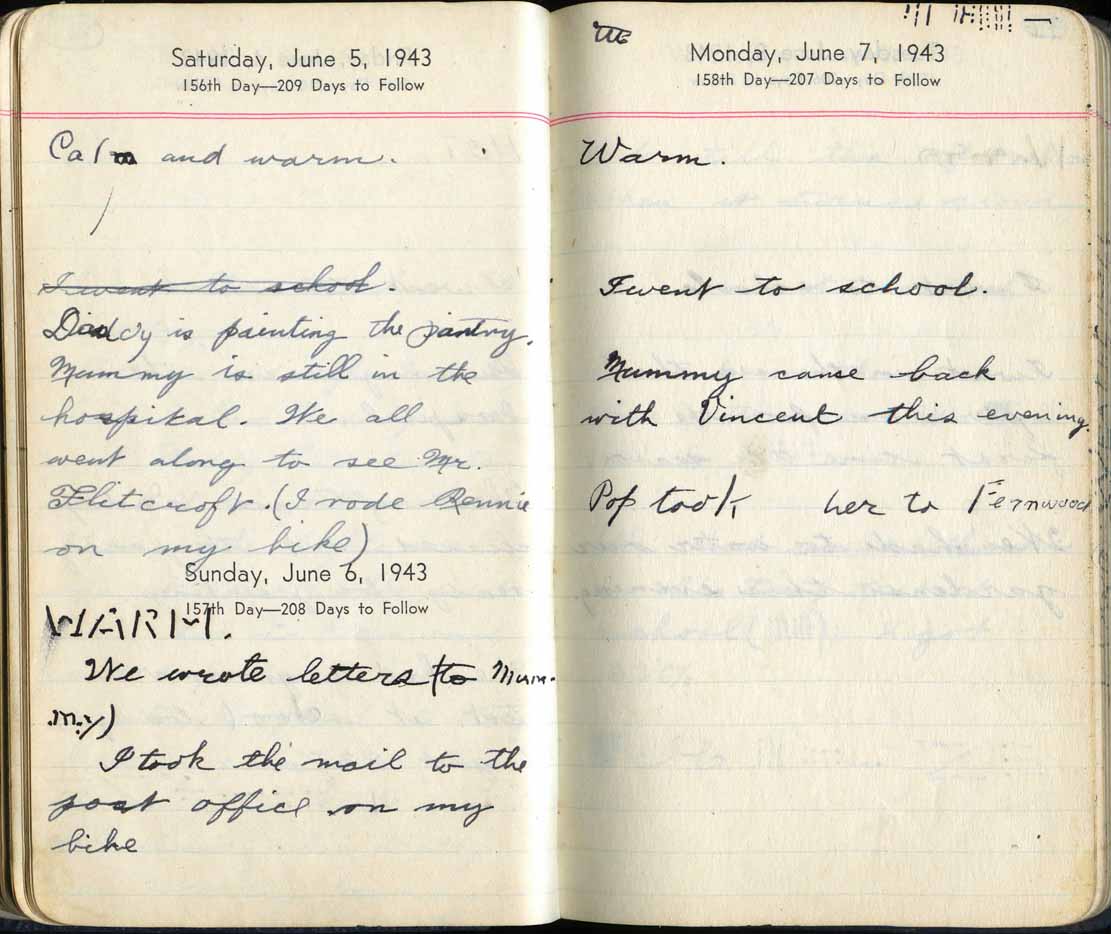 Saturday, June 5, 1943
156th Day—209 Days to Follow
Calm and warm.
I went to school.
Daddy is painting the pantry.
Mummy is still in the
hospital. We all
went along to see Mr.
Flitcroft. (I rode Rennie
on my bike)
Sunday, June 6, 1943
157th Day—208 Days to Follow
WARM.
We wrote letters (to Mum-
my)
I took the mail to the
post office on my
bike
Monday, June 7, 1943
158th Day—207 Days to Follow
Warm.
I went to school.
Mummy came back
with Vincent this evening.
Pop took her to Fernwood